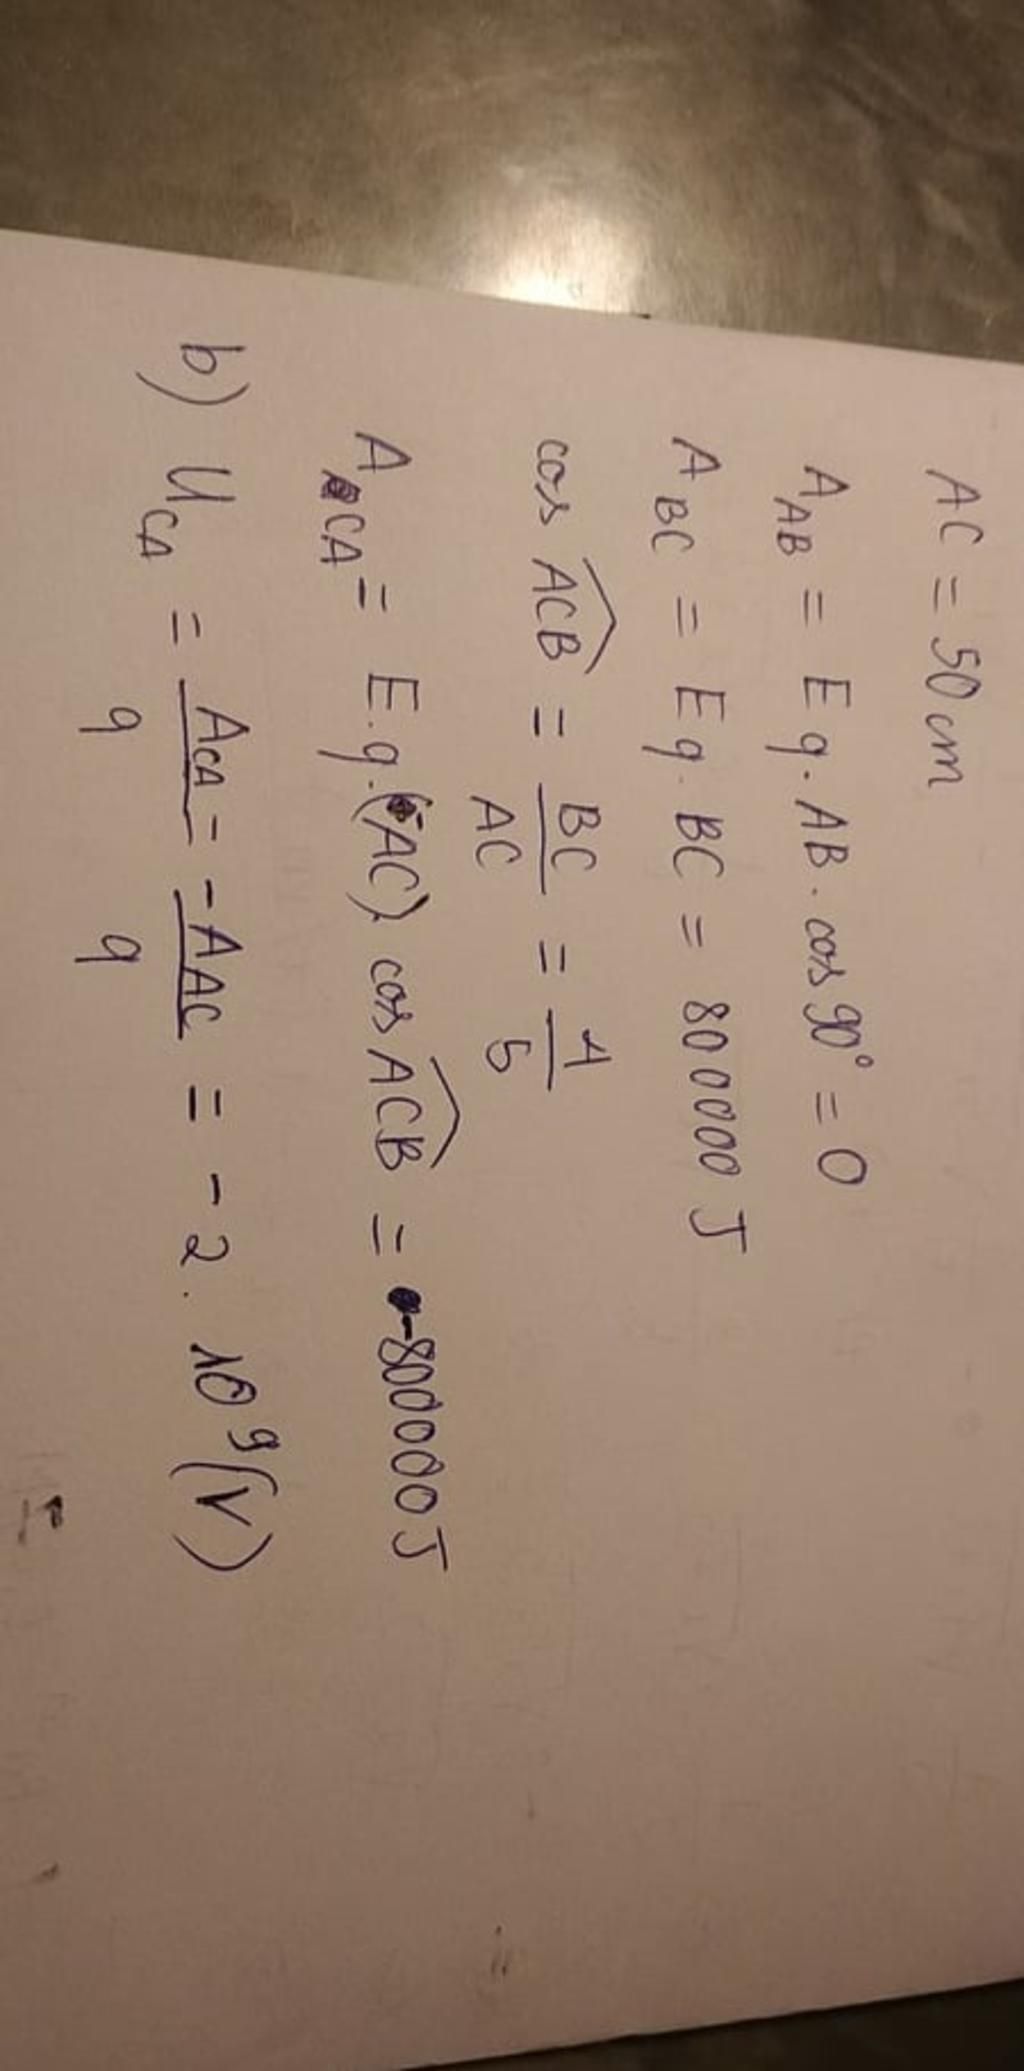 AC = 50 cm
A_AB = E q . AB . cos 90° = 0
A_BC = E q . BC = 800000 J
cos ACB = BC/AC = 1/5
A_CA = E.q.(-AC). cos ACB = -800000 J
b) U_CA = A_CA/q = -A_AC/q = -2. 10^9 (V)